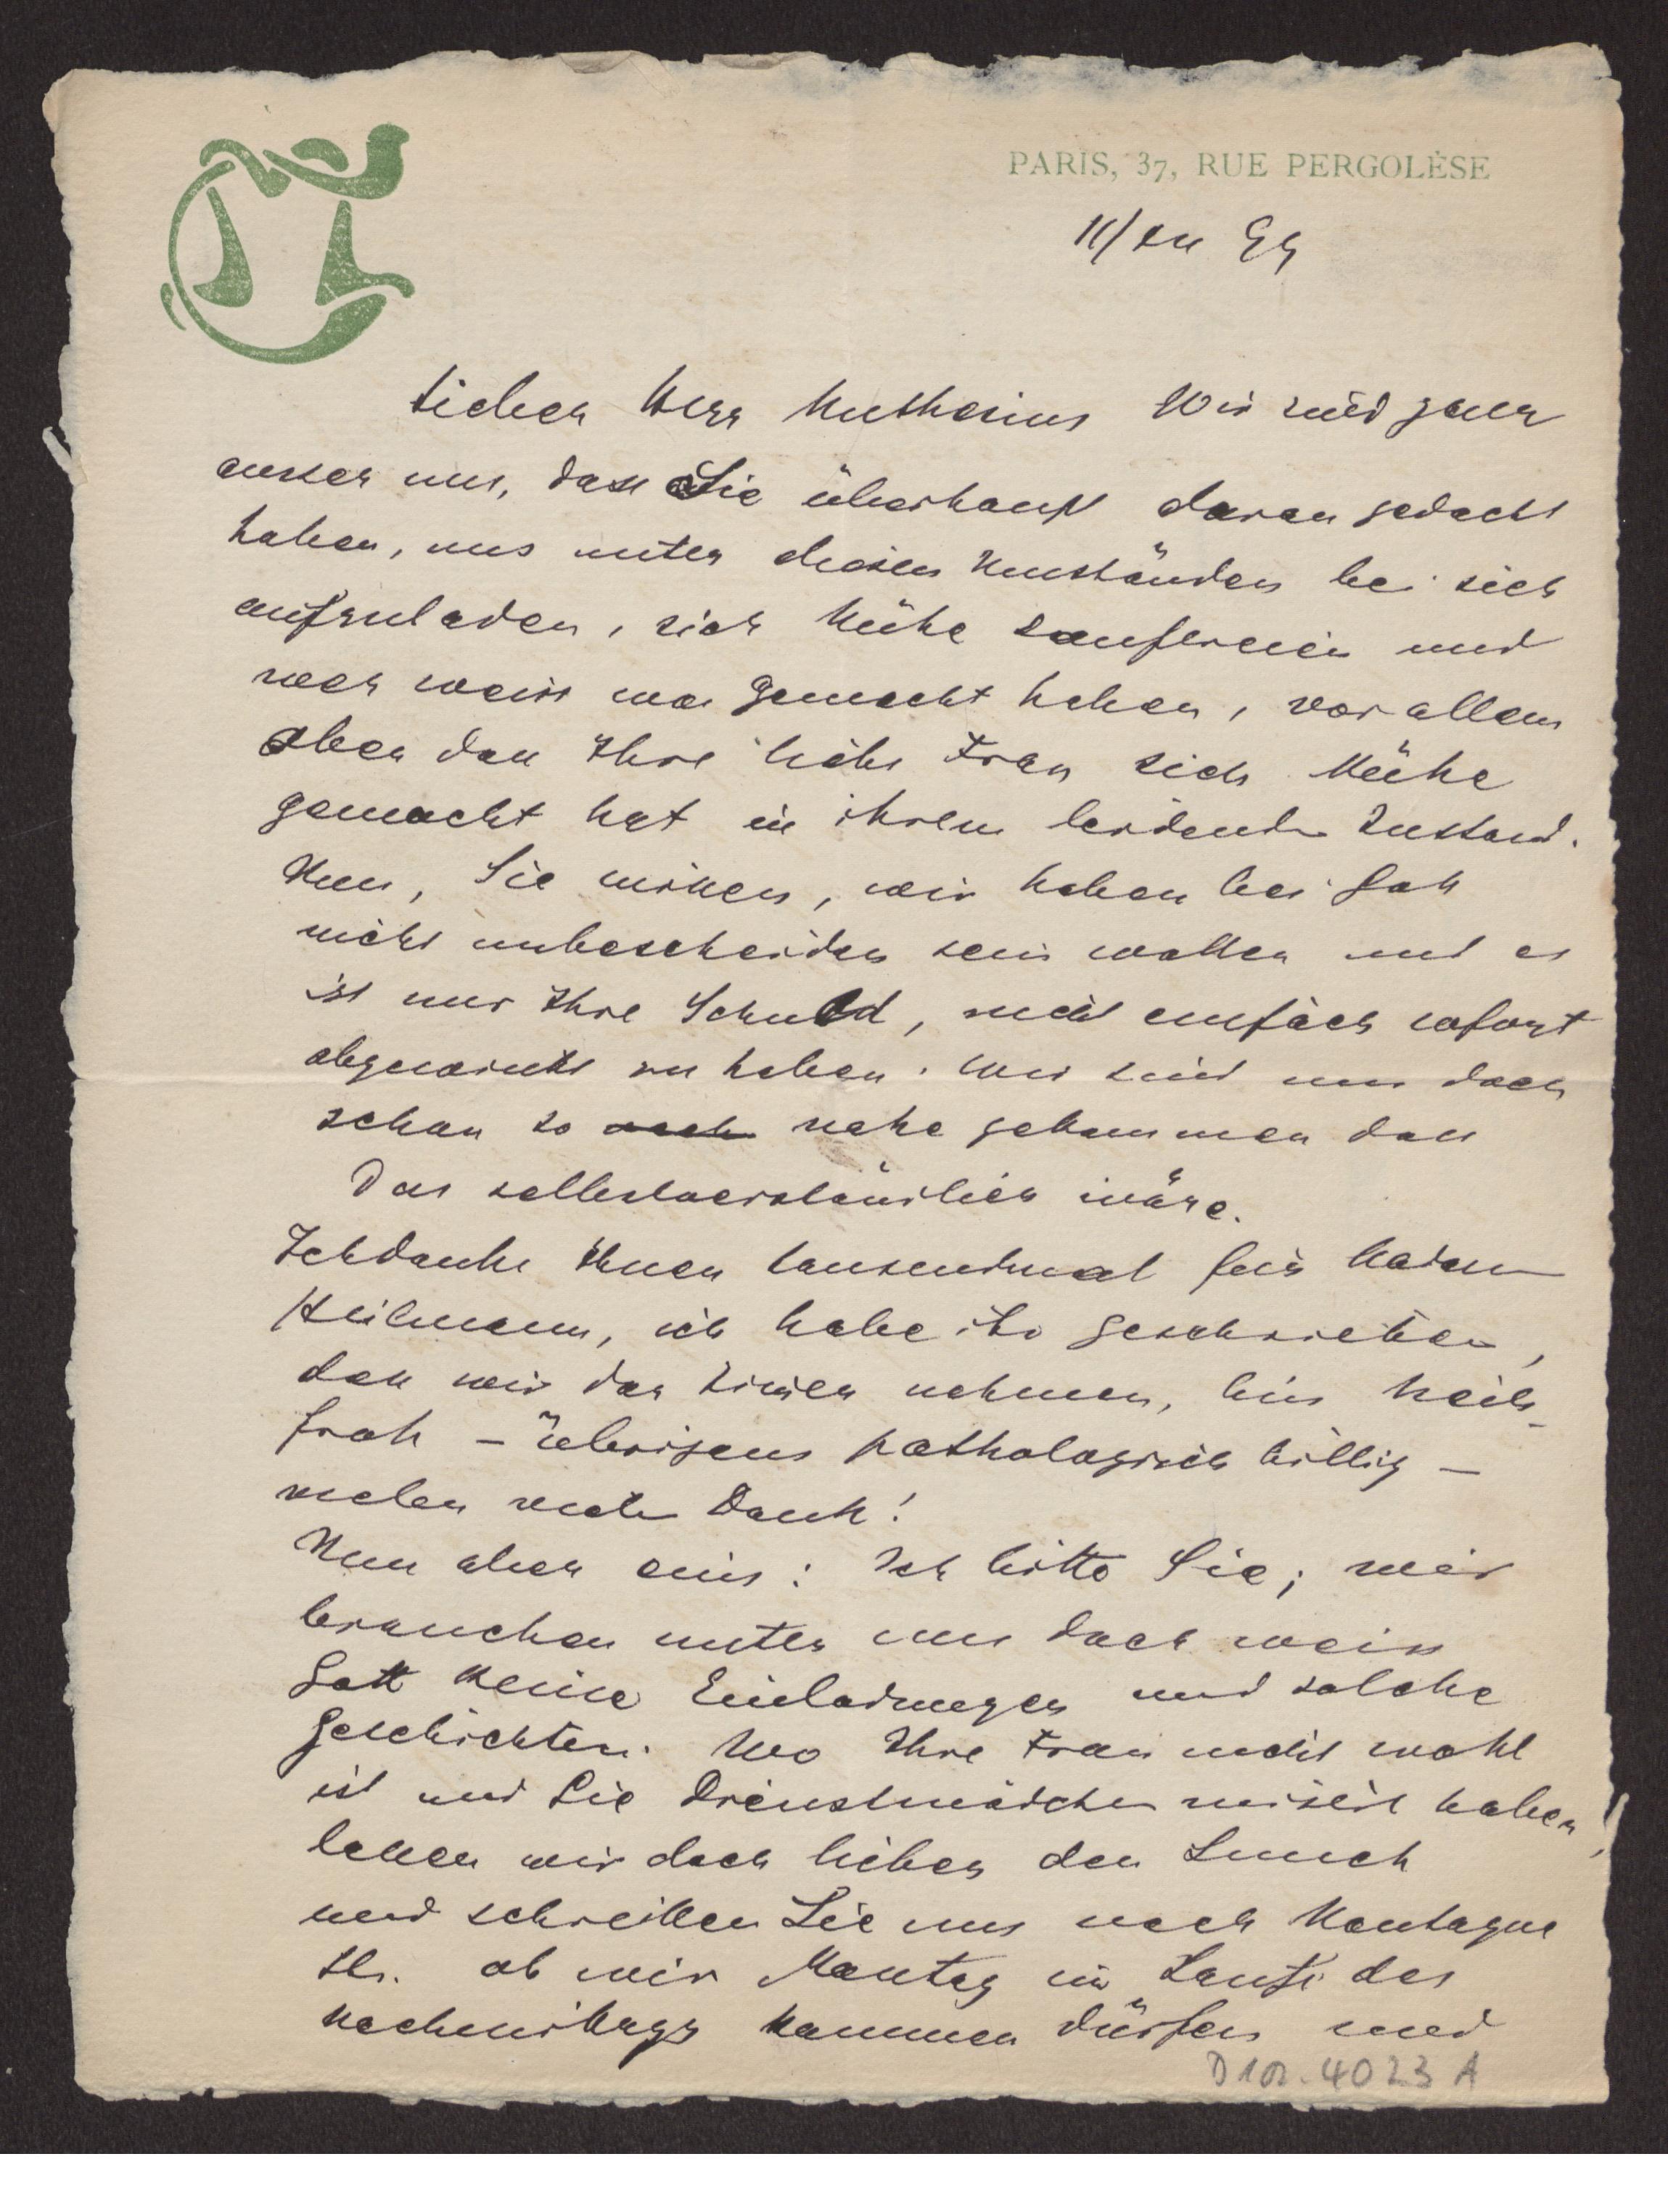 PARIS, 37, RUE PERGOLÈSE
11/XII 99
Lieber Herr Muthesius Wir sind ganz
ausser uns, dass Sie überhaupt daran gedacht
haben, uns unter diesen Umständen bei sich
aufzuladen, sich Mühe Laufereien und
wer weiss was gemacht haben, vor allem
aber dass Ihre liebe Frau sich Mühe
gemacht hat in ihrem leidenden Zustand.
Nun, Sie wissen, wir haben bei Gott
nicht unbescheiden sein wollen und es
ist nur Ihre Schuld, nicht einfach sofort
abgewinkt zu haben. Wir sind uns doch
schon so nahe gekommen dass
Das selbstverständlich wäre.
Ich danke Ihnen tausendmal für Madam
Heilmann, ich habe ihr geschrieben,
dass wir das Zimer nehmen, bin heil-
froh – übrigens pathologisch billig –
vielen vielen Dank!
Nun aber eins: Ich bitte Sie; wir
brauchen unter uns doch weiss
Gott keine Einladungen und solche
Geschichten. Wo Ihre Frau nicht wohl
ist und Sie Dienstmädchen haben,
lassen wir doch lieber den Lunch
und schreiben Sie uns nach Montague
Str. ob wir Montag im Laufe des
Nachmittags kommen dürfen und
D 102-4023 A